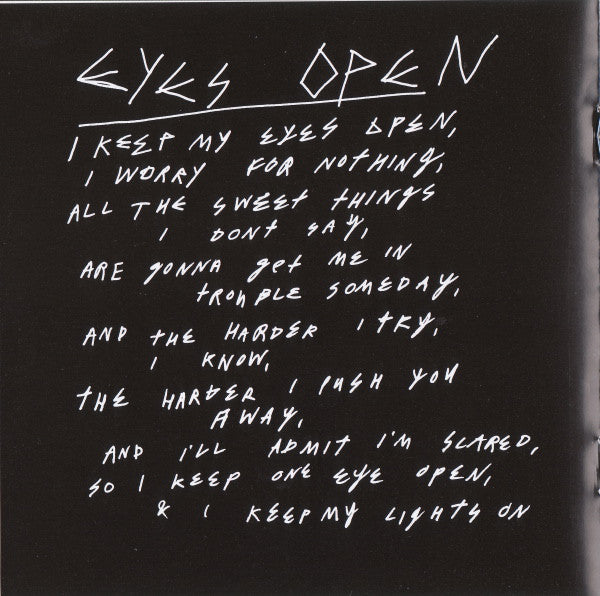 EYES OPEN
I KEEP MY EYES OPEN,
I WORRY FOR NOTHING,
ALL THE SWEET THINGS
I DONT SAY,
ARE GONNA get ME IN
TROUBLE SOMEDAY,
AND THE HARDER I TRY,
I KNOW,
THE HARDER I PUSH YOU
AWAY,
AND I'LL ADMIT I'M SCARED,
SO I KEEP ONE EYE OPEN,
& I KEEP MY LIGHTS ON